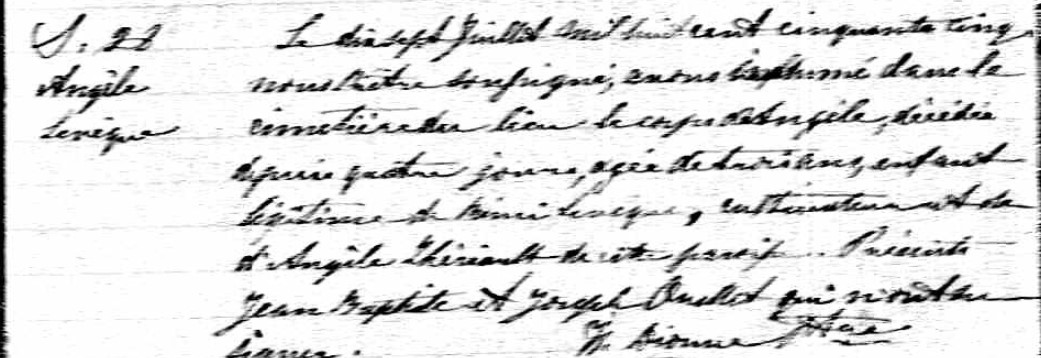 S. 28
Angèle
Levèque
Le dix sept Juillet mil huit cent cinquante cinq,
nous Prêtre soussigné, avons inhumé dans le
cimetière du lieu le corps d'Angèle, décédée
depuis quatre jours, agée de trois ans, enfant
légitime de Rémi Levèque, cultivateur et de
d'Angèle Thériault de cette paroisse. Présents
Jean Baptiste et Joseph Ouellet qui n'ont su
signer.
Dionne Ptre